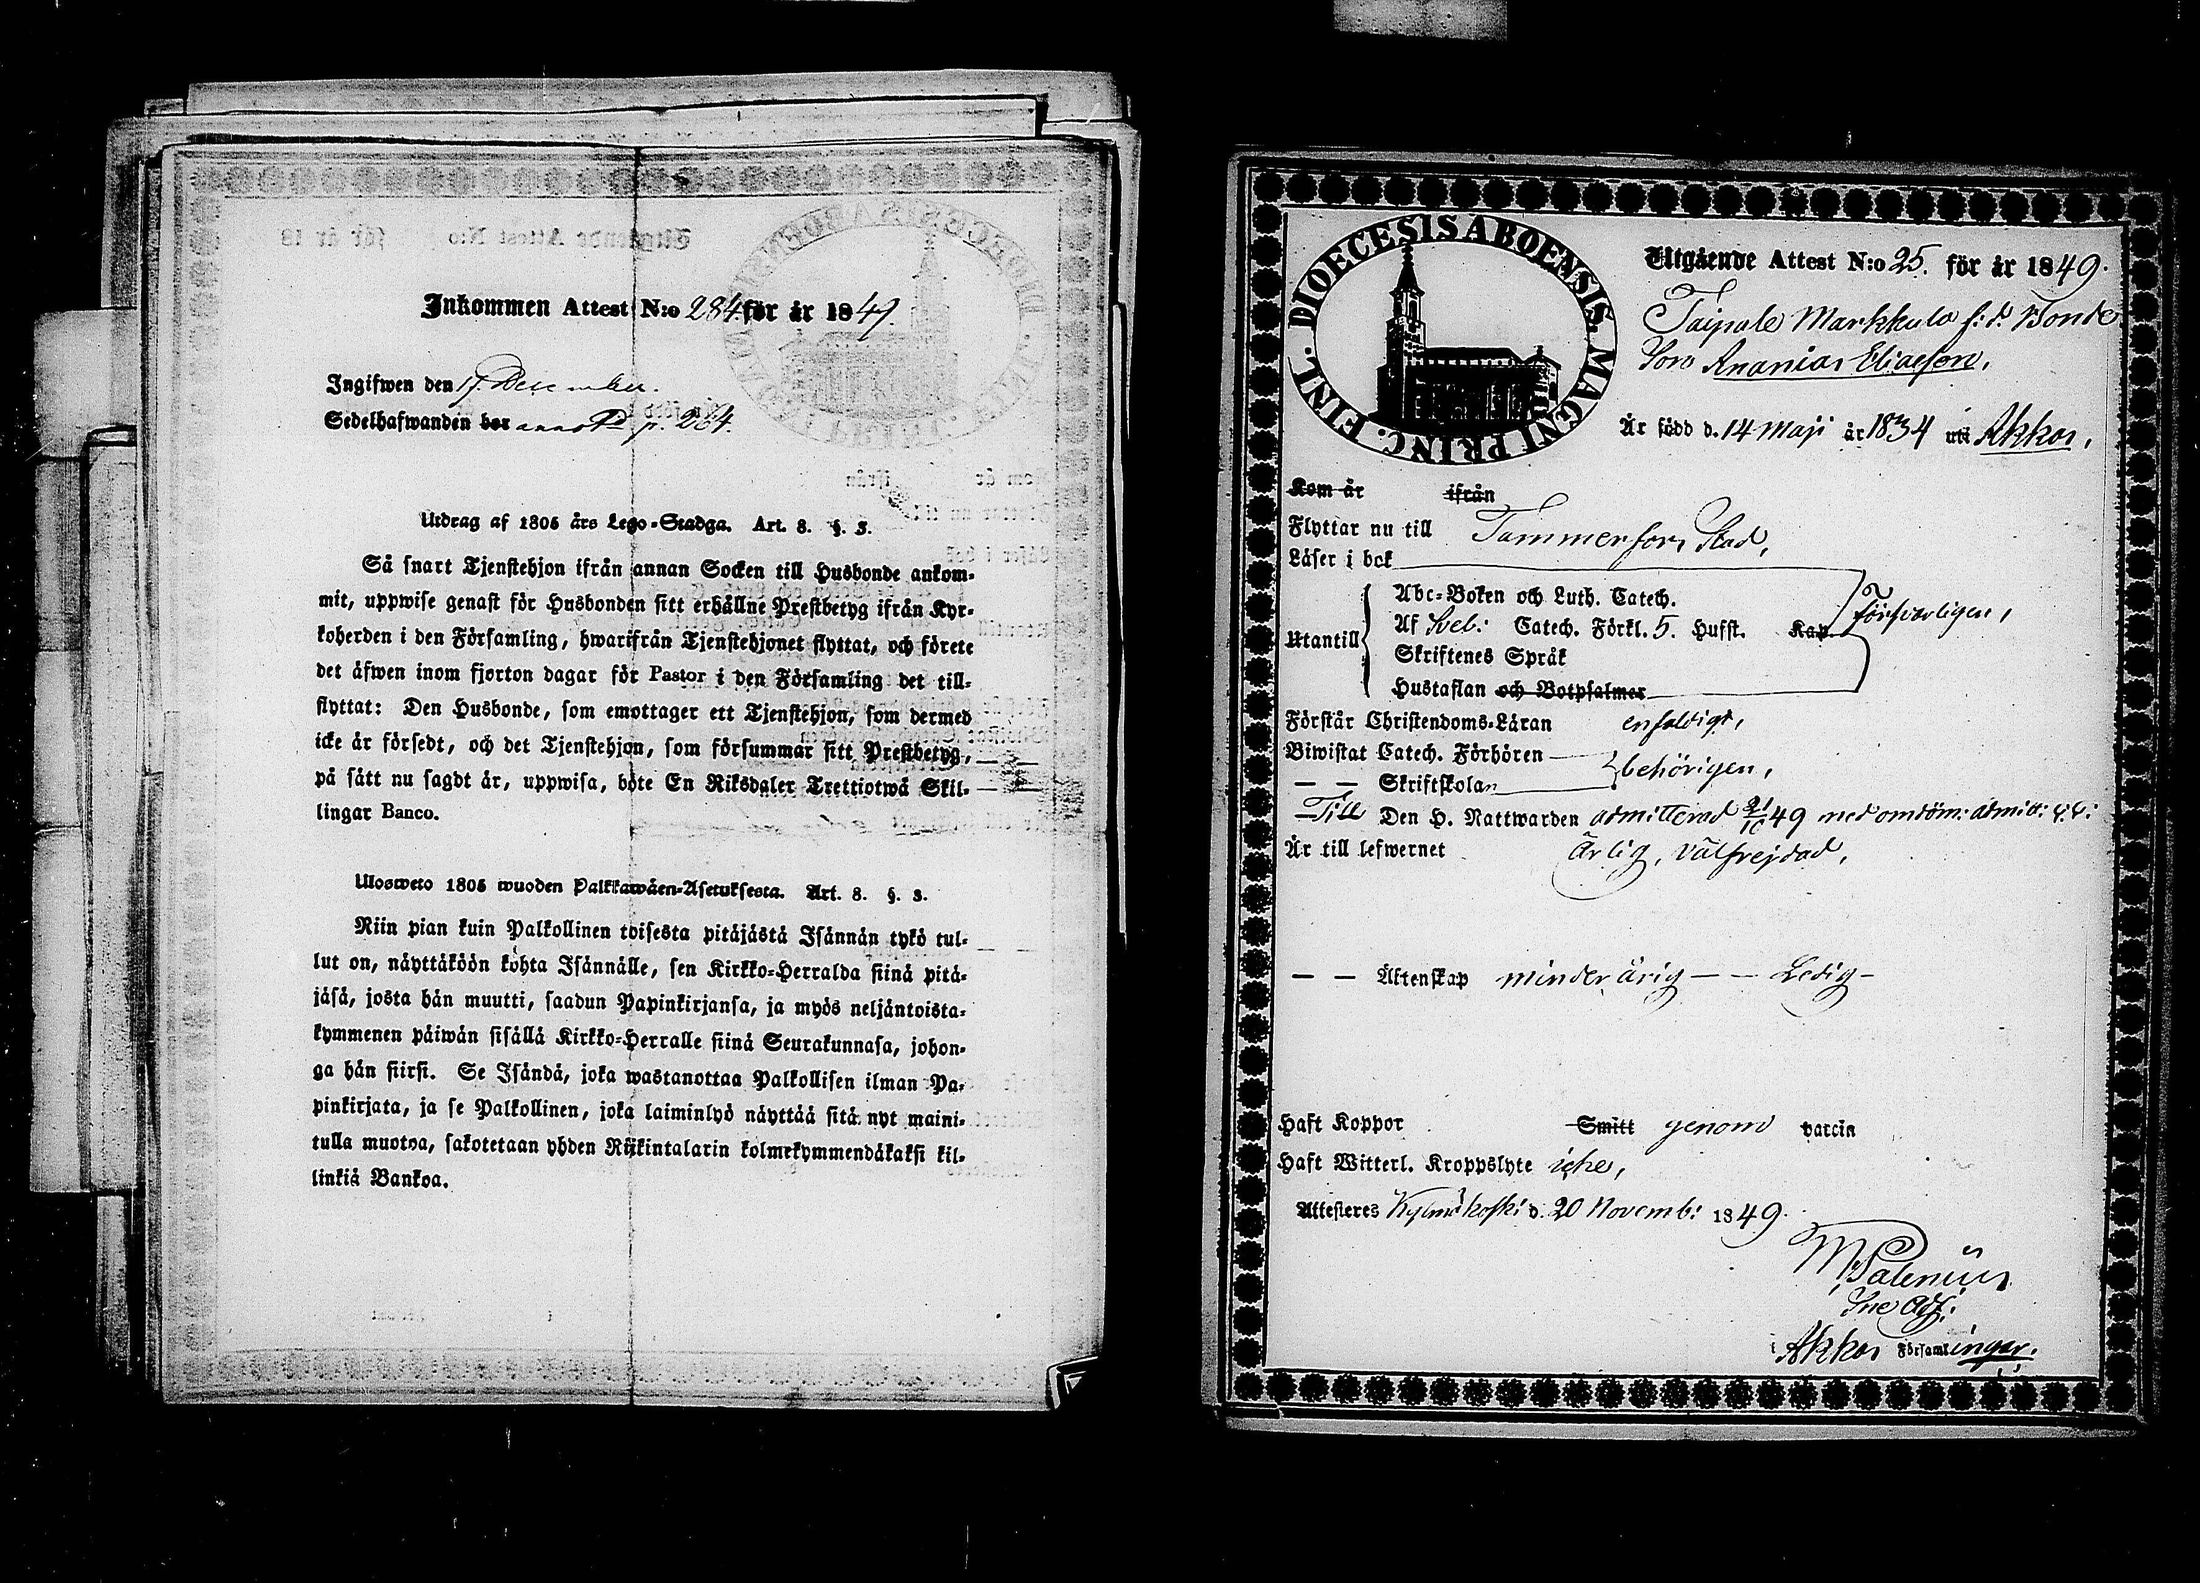 Inkommen Attest N:o 284 för år 1849.
Ingifwen den 17 December.
Sedelhafwanden bor annot. p. 264.
Utdrag af 1805 års Lego-Stadga. Art. 8. §. 3.
Så snart Tjenstehjon ifrån annan Socken till Husbonde ankom-
mit, uppwise genast för Husbonden sitt erhållne Prestbetyg ifrån Kyr-
koherden i den Församling, hwarifrån Tjenstehjonet flyttat, och förete
det äfwen inom fjorton dagar för Pastor i den Församling det till-
flyttat: Den Husbonde, som emottager ett Tjenstehjon, som dermed
icke är försedt, och det Tjenstehjon, som försummar sitt Prestbetyg,
på sätt nu sagdt är, uppwisa, böte En Riksdaler Trettiotwå Skil-
lingar Banco.
Ulosweto 1805 wuoden Palkkawäen-Asetuksesta. Art. 8. §. 3.
Niin pian kuin Palkollinen toisesta pitäjästä Isännän tykö tul-
lut on, näyttäköön kohta Isännälle, sen Kirkko-Herralda siinä pitä-
jäsä, josta hän muutti, saadun Papinkirjansa, ja myös neljäntoista-
kymmenen päiwän sisällä Kirkko-Herralle siinä Seurakunnasa, johon-
ga hän siirsi. Se Isändä, joka wastanottaa Palkollisen ilman Pa-
pinkirjata, ja se Palkollinen, joka laiminlyö näyttää sitä nyt maini-
tulla muotoa, sakotetaan yhden Riikintalarin kolmekymmendäkaksi kil-
linkiä Bankoa.
DIOECESIS ABOENSIS. MAGNI PRINC. FINL.
Utgående Attest N:o 25. för år 1849.
Taipale Markkula f: d. Bonde
Son Ananias Eliaeson,
Är född d. 14 Maji år 1834 uti Akkas,
Kom år ifrån
Flyttar nu till Tammerfors Stad,
Läser i bok
Abc-Boken och Luth. Catech.
Försvarligen,
Utantill
Af Sveb: Catech. Förkl. 5. Hufst. Kap.
Skriftenes Språk
Hustaflan och Botpsalmer
Förstår Christendoms-Läran enfaldigt,
Biwistat Catech. Förhören
behörigen,
— — Skriftskolan
Till Den H. Nattwarden admitterad 21/10 49 med omdöm: admitt: c. c:
Är till lefwernet Ärlig, välfrejdad,
— — Äktenskap minderårig — — Ledig —
Haft Koppor Smitt genom vaccin
Haft Witterl. Kroppslyte icke,
Attesteras Kylmäkoski d. 20 Novemb: 1849.
M Palenius
Sne Adj:
i Akkas Församlingar.